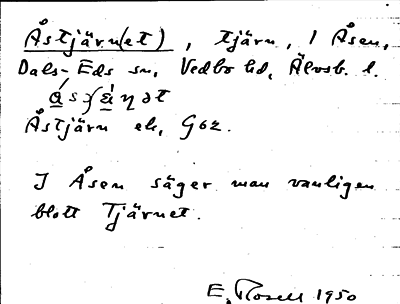 Åstjärn(et), tjärn, i Åsen,
Dals-Eds sn, Vedbo hd, Älvsb. l.
Åstjärn ek, G62.
I Åsen säger man vanligen
blott Tjärnet.
E. Rosell 1950